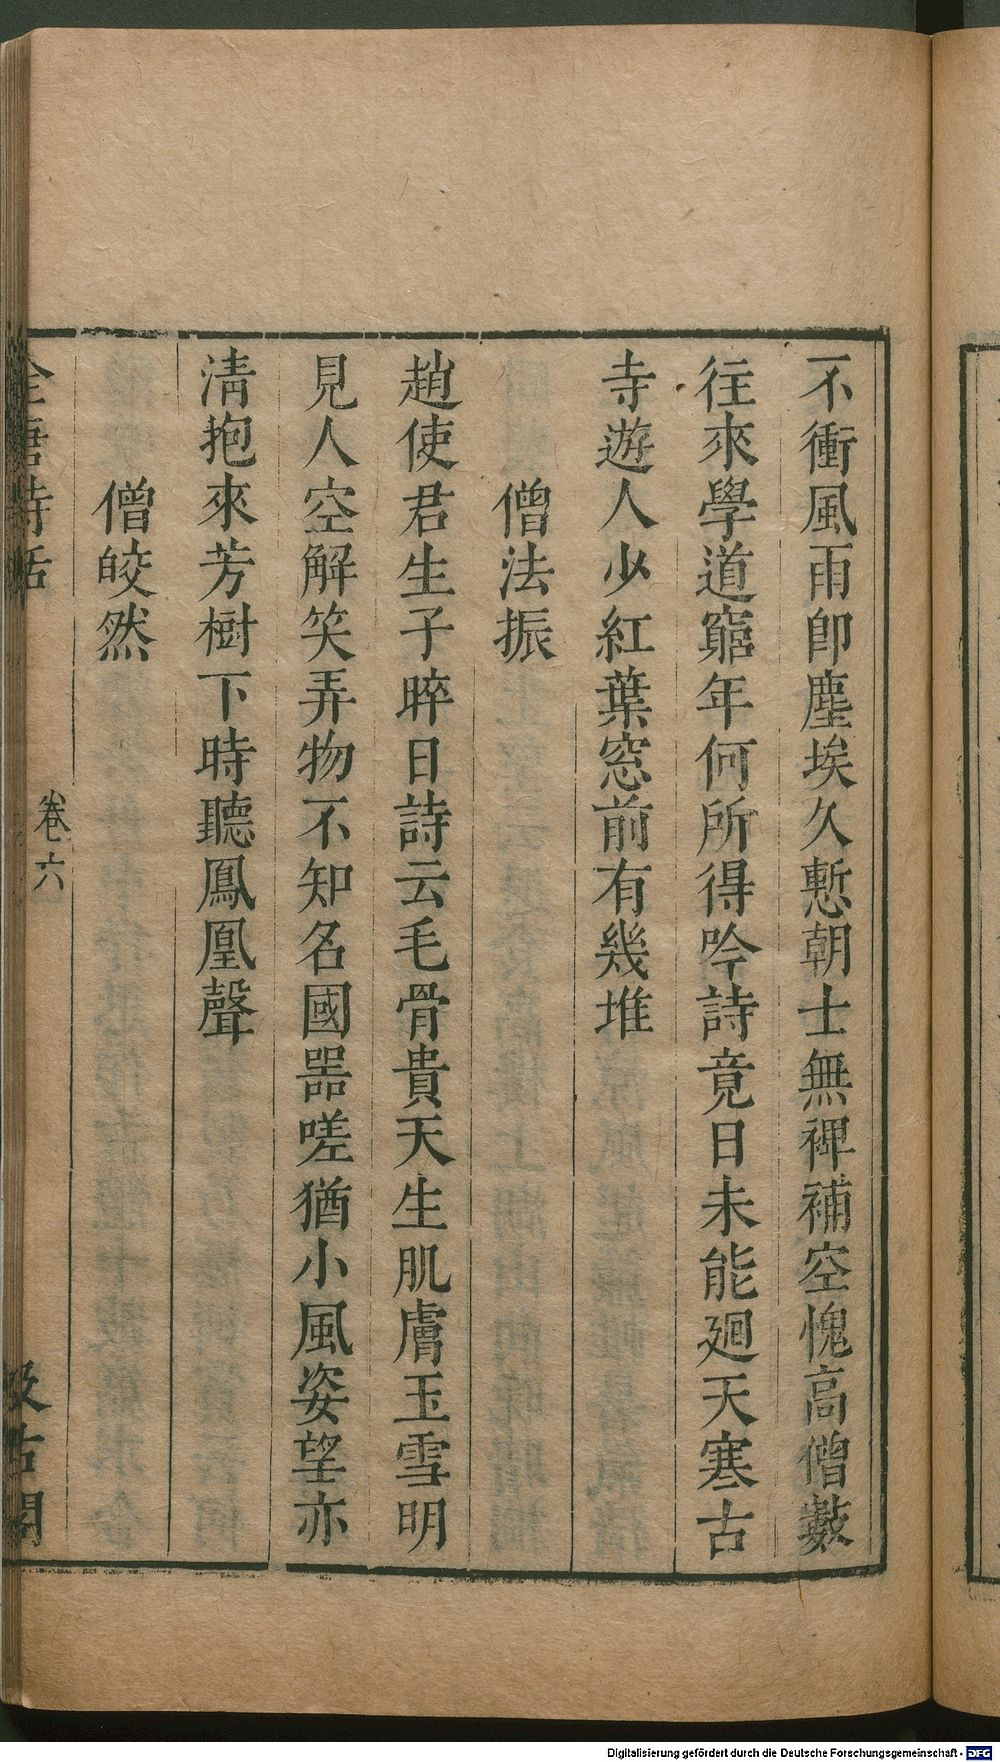 不衝風雨即塵埃久慙朝士無裨補空愧高僧數
往來學道窮年何所得吟詩竟日未能廻天寒古
寺遊人少紅葉窓前有幾堆
僧法振
趙使君生子晬日詩云毛骨貴天生肌膚玉雪明
見人空解笑弄物不知名國器嗟猶小風姿望亦
清抱來芳樹下時聽鳳凰聲
僧皎然
全唐詩話
卷六
汲古閣
Digitalisierung gefördert durch die Deutsche Forschungsgemeinschaft - DFG